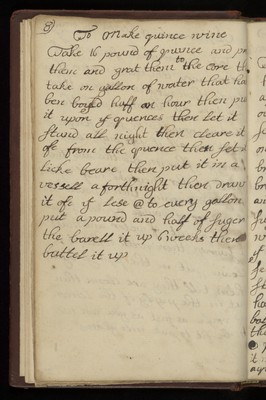 8)
To Make quince wine
Take 16 pound of quince and pr
them and grat them to the core th
take on gallon of water that ha
ben boyld haff an hour then put
it upon ye quences then Let it
stand all night then cleare it
ofe from the quence then set
Licke beare then put it in a
vessell a forthnight then draw
it ofe if Lese @ to every gallon
put a pound and half of suger
the barell it up 6 weeks then
battel it up